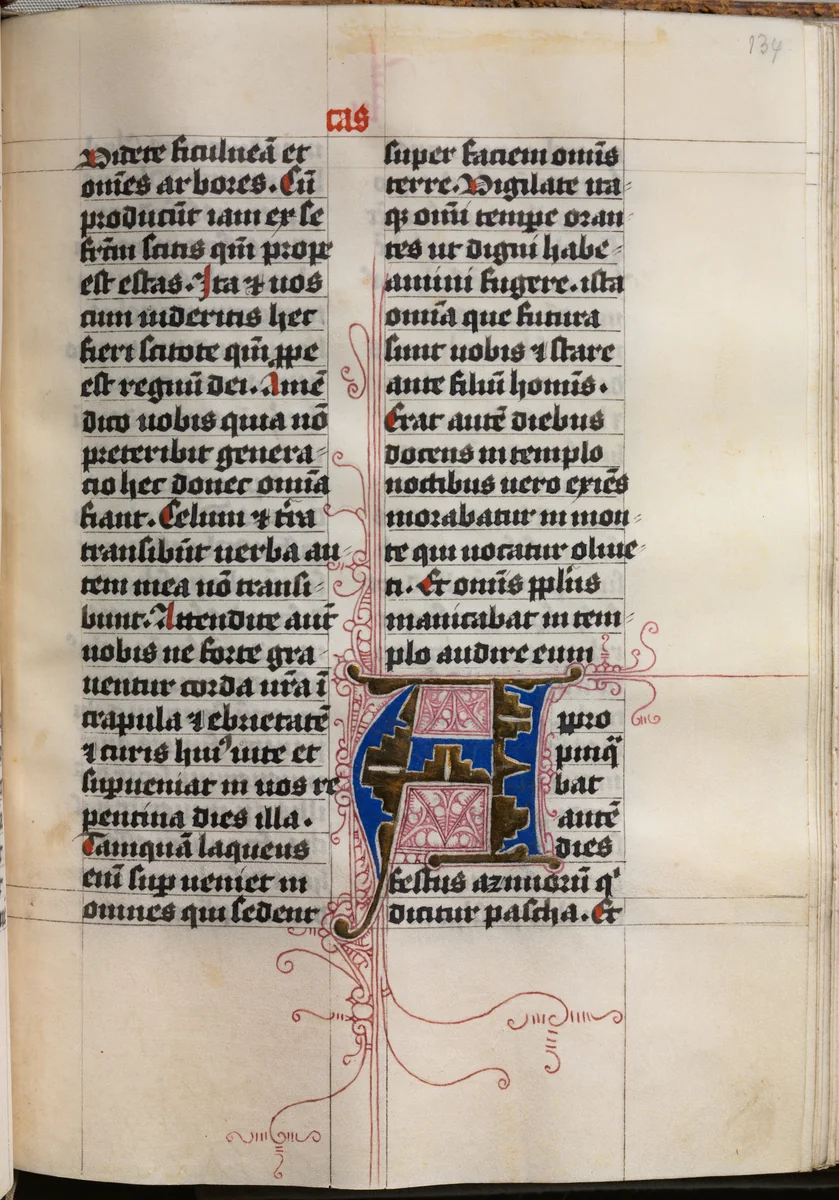 134
cas
Videte ficulneā et
om̄es arbores. Cū
producūt iam ex se
fr̄cm scitis qm̄ prope
est estas. Ita ⁊ uos
cum uideritis hec
fieri scitote qm̄ ꝓpe
est regnū dei. Amē
dico uobis quia nō
preteribit genera-
cio hec donec omīa
fiant. Celum ⁊ tr̄a
transibūt uerba au-
tem mea nō transi-
bunt. Attendite aut̄
uobis ne forte gra-
uentur corda ur̄a ī
crapula ⁊ ebrietatē
⁊ curis huiꝰ uite et
suꝑueniat in uos re
pentina dies illa.
Tamquā laqueus
enī suꝑ ueniet in
omnes qui sedent
super faciem omīs
terre. Vigilate ita-
qꝫ omī temꝑe oran-
tes ut digni habe-
amini fugere. ista
omīa que futura
sunt uobis ⁊ stare
ante filiū homīs.
Erat autē diebus
docens in templo
noctibus uero exiēs
morabatur in mon-
te qui uocatur oliue-
ti. Et omīs ppl̄us
manicabat in tem-
plo audire eum
Appro
pinq̄
bat
autē
dies
festus azimorū qͥ
dicitur pascha. Et